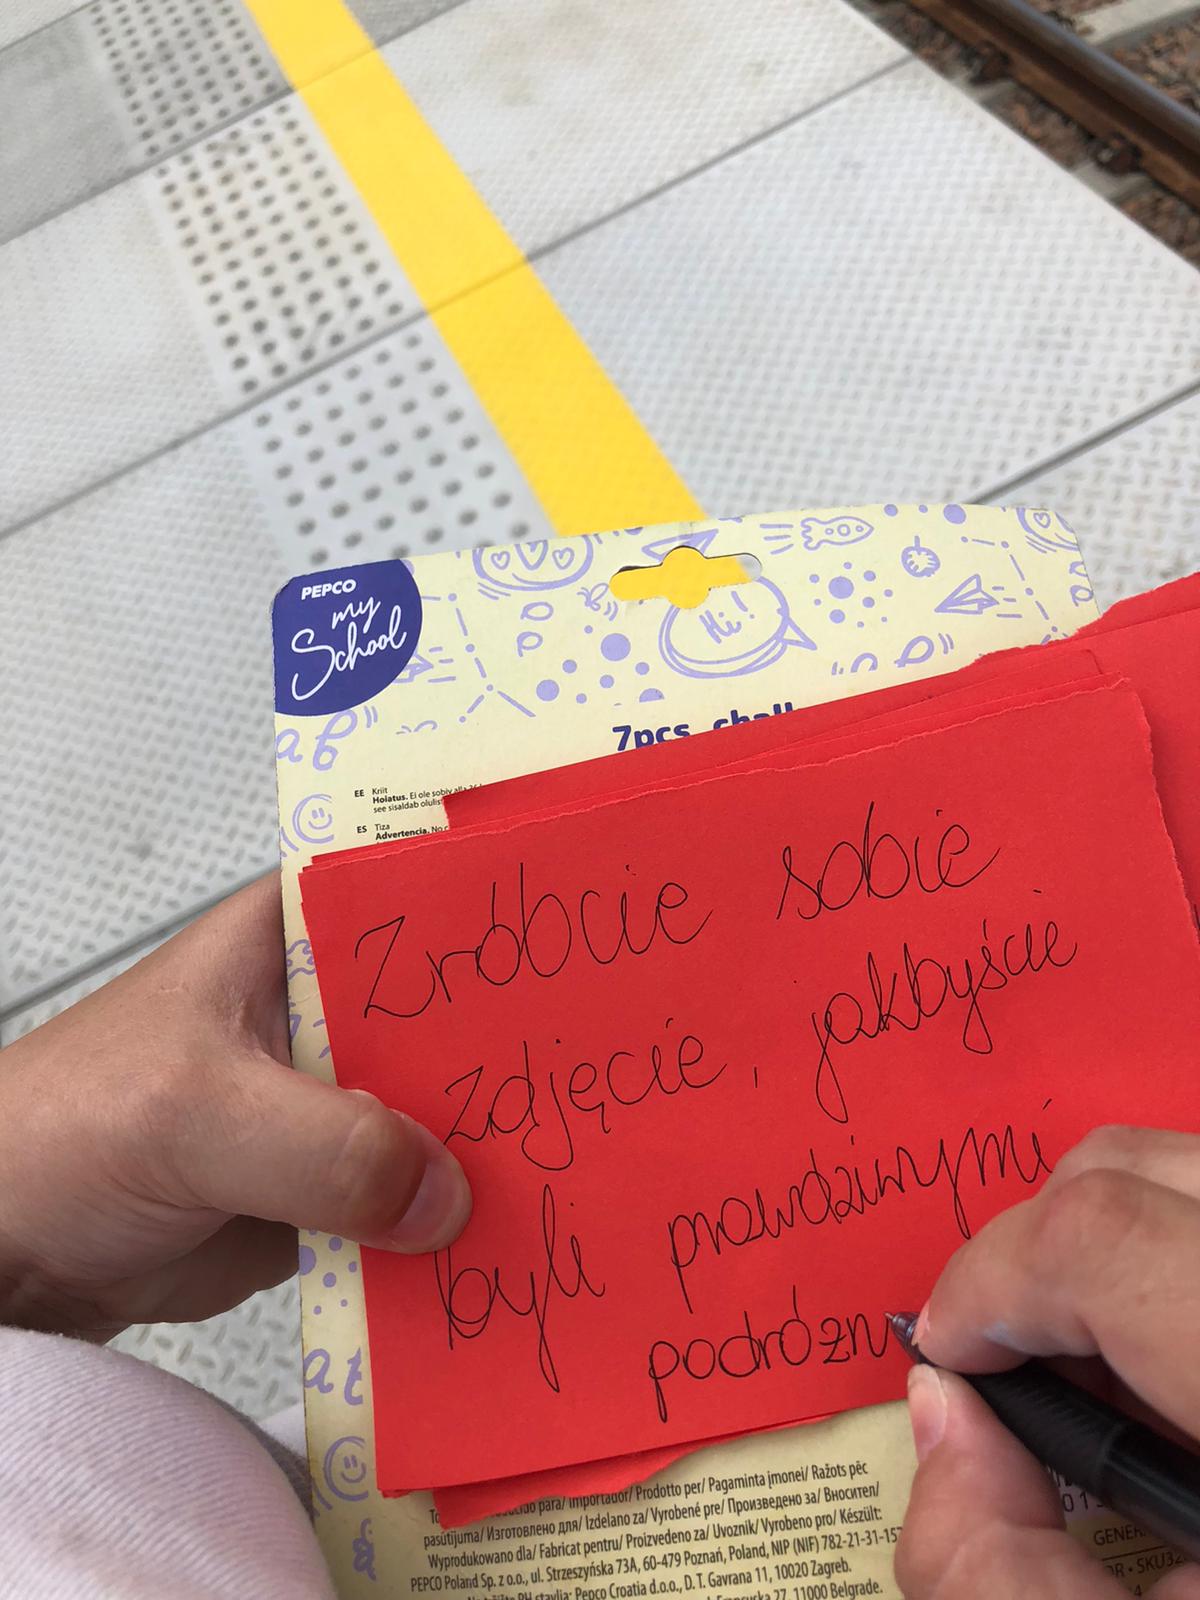 PEPCO
my
School
Hi!
7pcs chall
EE Kriit
Hoiatus. Ei ole sobiv alla 36
see sisaldab olulist
ES Tiza
Advertencia. No c
Zróbcie sobie
zdjęcie, jakbyście
byli prawdziwymi
podrózn
para/ Importador/ Prodotto per/ Pagaminta įmonei/ Ražots pēc
pasūtījuma/ Изготовлено для/ Izdelano za/ Vyrobené pre/ Произведено за/ Вносител/
Wyprodukowano dla/ Fabricat pentru/ Proizvedeno za/ Uvoznik/ Vyrobeno pro/ Készült:
PEPCO Poland Sp. z o.o., ul. Strzeszyńska 73A, 60-479 Poznań, Poland, NIP (NIF) 782-21-31-157
stavlja: Pepco Croatia d.o.o., D. T. Gavrana 11, 10020 Zagreb.
27, 11000 Belgrade.
GENER